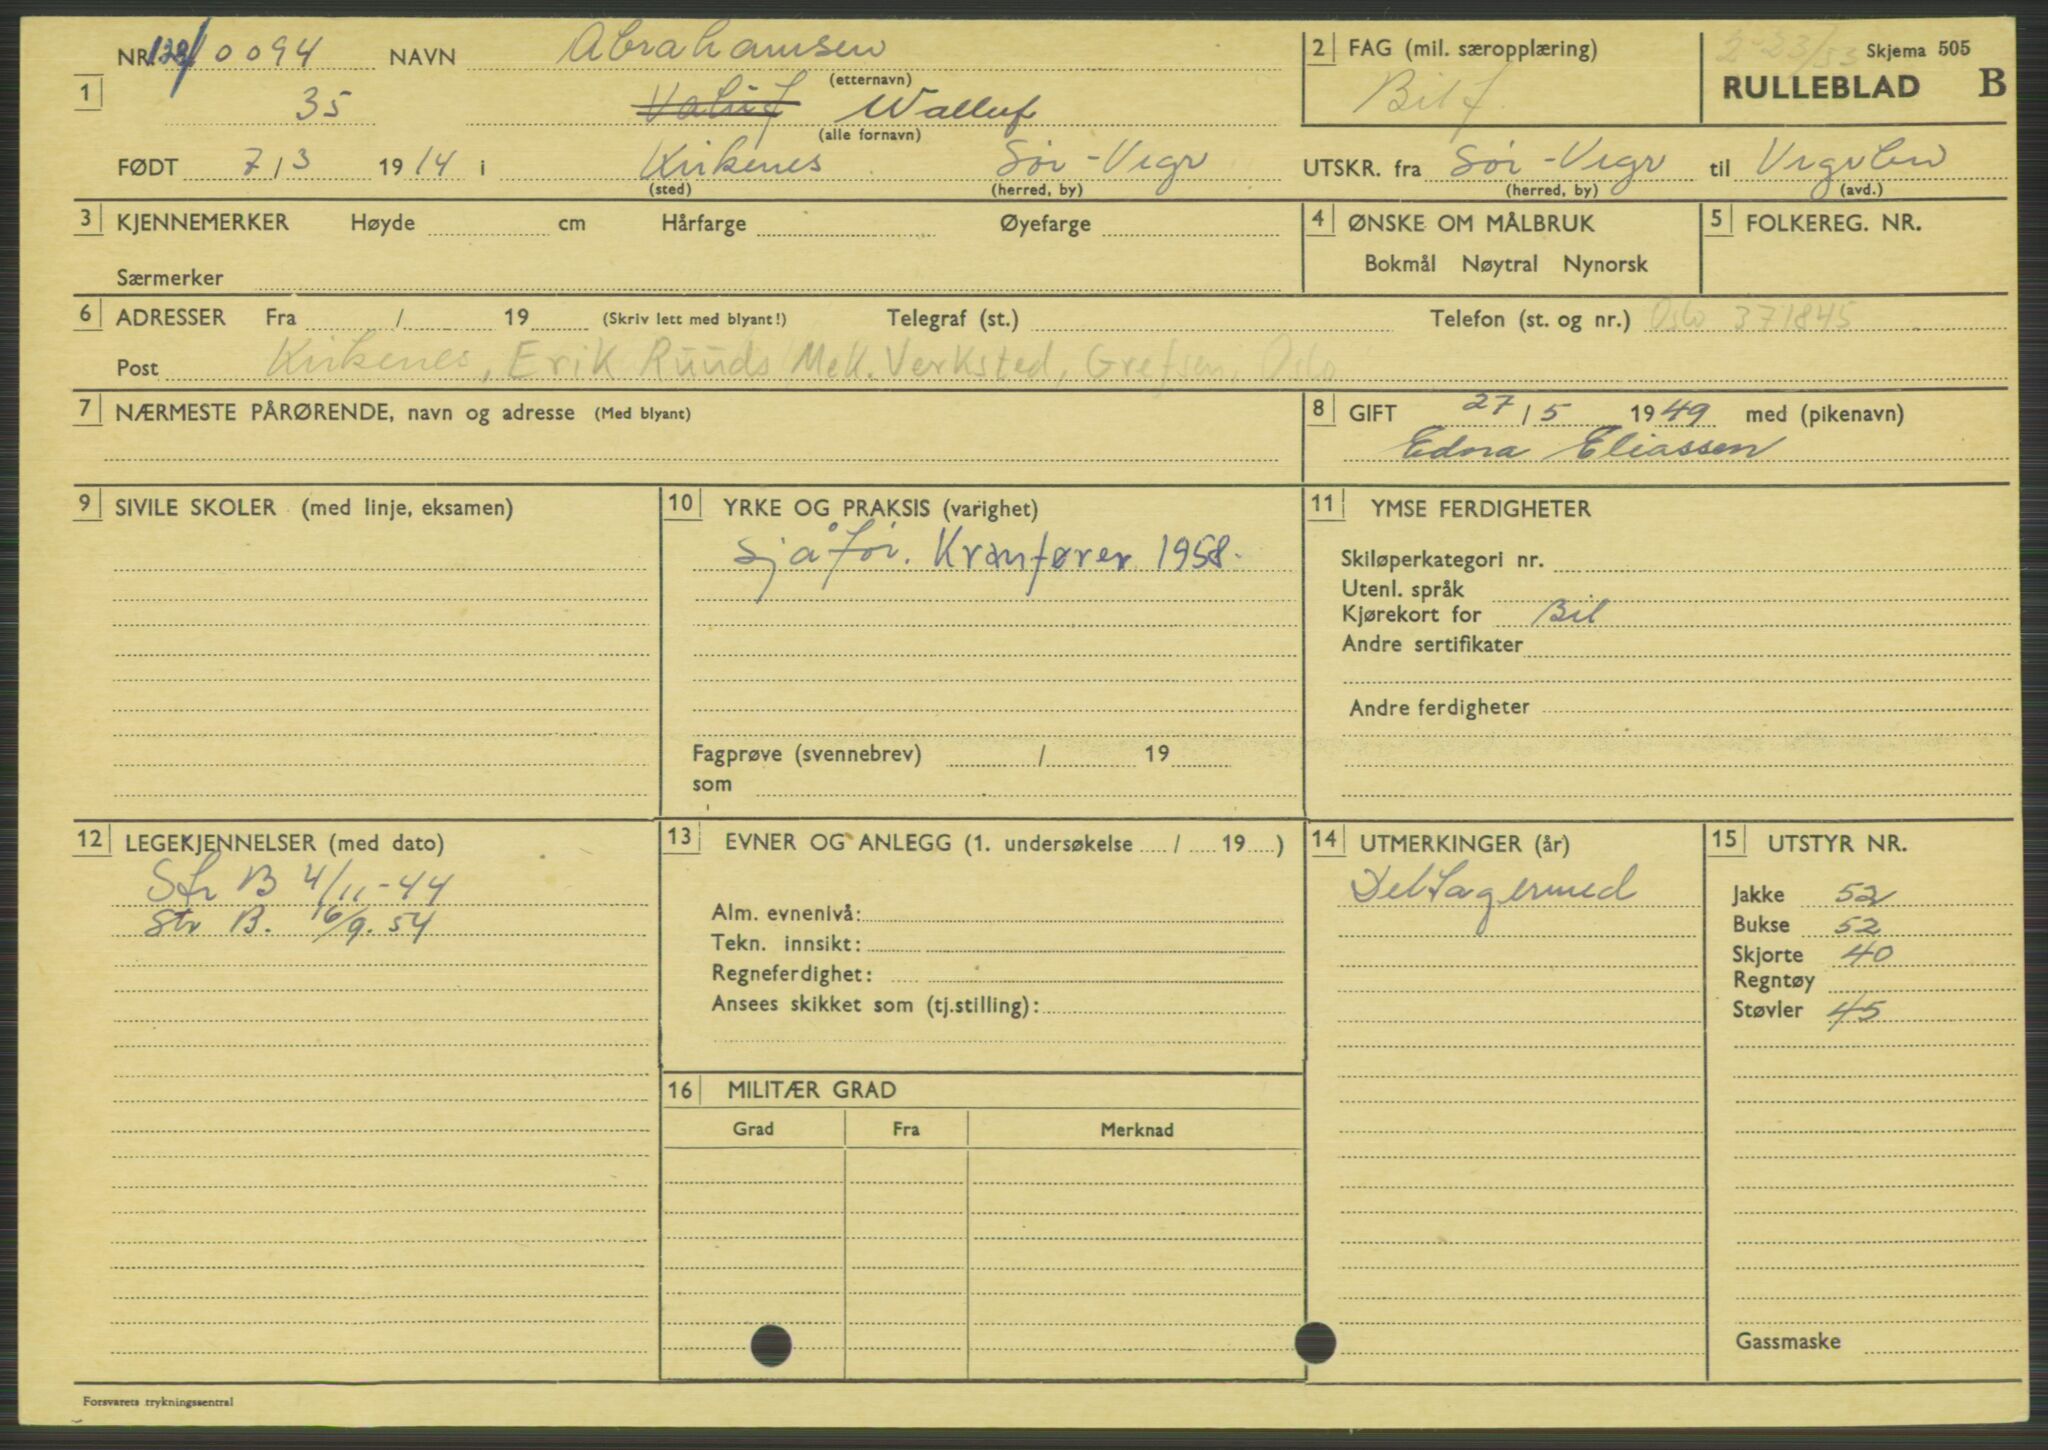 NR. 0094 NAVN Abrahamsen
(etternavn)
2 FAG (mil. særopplæring) Skjema 505
RULLEBLAD B
Bilf.
1 35 Walluf
(alle fornavn)
FØDT 7/3 1914 i Kirkenes Sør-Vrgr UTSKR. fra Sør-Vrgr til
(sted) (herred, by) (herred, by) (avd.)
3 KJENNEMERKER Høyde cm Hårfarge Øyefarge
Særmerker
4 ØNSKE OM MÅLBRUK
Bokmål Nøytral Nynorsk
5 FOLKEREG. NR.
6 ADRESSER Fra / 19 (Skriv lett med blyant!) Telegraf (st.) Telefon (st. og nr.) Oslo 371845
Post Kirkenes, Erik Ruuds Mek. Verksted, Grefsen, Oslo
7 NÆRMESTE PÅRØRENDE, navn og adresse (Med blyant)
8 GIFT 27/5 1949 med (pikenavn)
Edna Eliassen
9 SIVILE SKOLER (med linje, eksamen)
10 YRKE OG PRAKSIS (varighet)
Sjåfør. Kranfører 1958.
Fagprøve (svennebrev) / 19
som
11 YMSE FERDIGHETER
Skiløperkategori nr.
Utenl. språk
Kjørekort for Bil
Andre sertifikater
Andre ferdigheter
12 LEGEKJENNELSER (med dato)
Str B 4/11-44
Str B. 16/9.54
13 EVNER OG ANLEGG (1. undersøkelse / 19 )
Alm. evnenivå:
Tekn. innsikt:
Regneferdighet:
Ansees skikket som (tj.stilling):
14 UTMERKINGER (år)
Deltagermed
15 UTSTYR NR.
Jakke 52
Bukse 52
Skjorte 40
Regntøy
Støvler 45
Gassmaske
16 MILITÆR GRAD
Grad Fra Merknad
Forsvarets trykningssentral